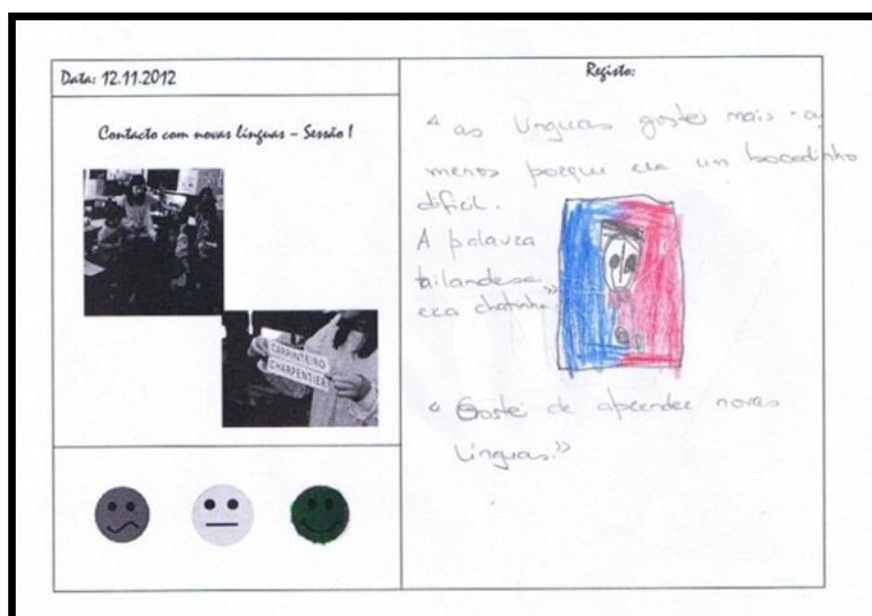 Data: 12.11.2012
Contacto com novas línguas – Sessão 1
CARPINTEIRO
CHARPENTIER
Registo:
« as línguas gostei mais
menos porque era un bocadinho
dificil.
A palavra
tailandesa
era chatinha.»
« Gostei de aprender novas
Línguas.»